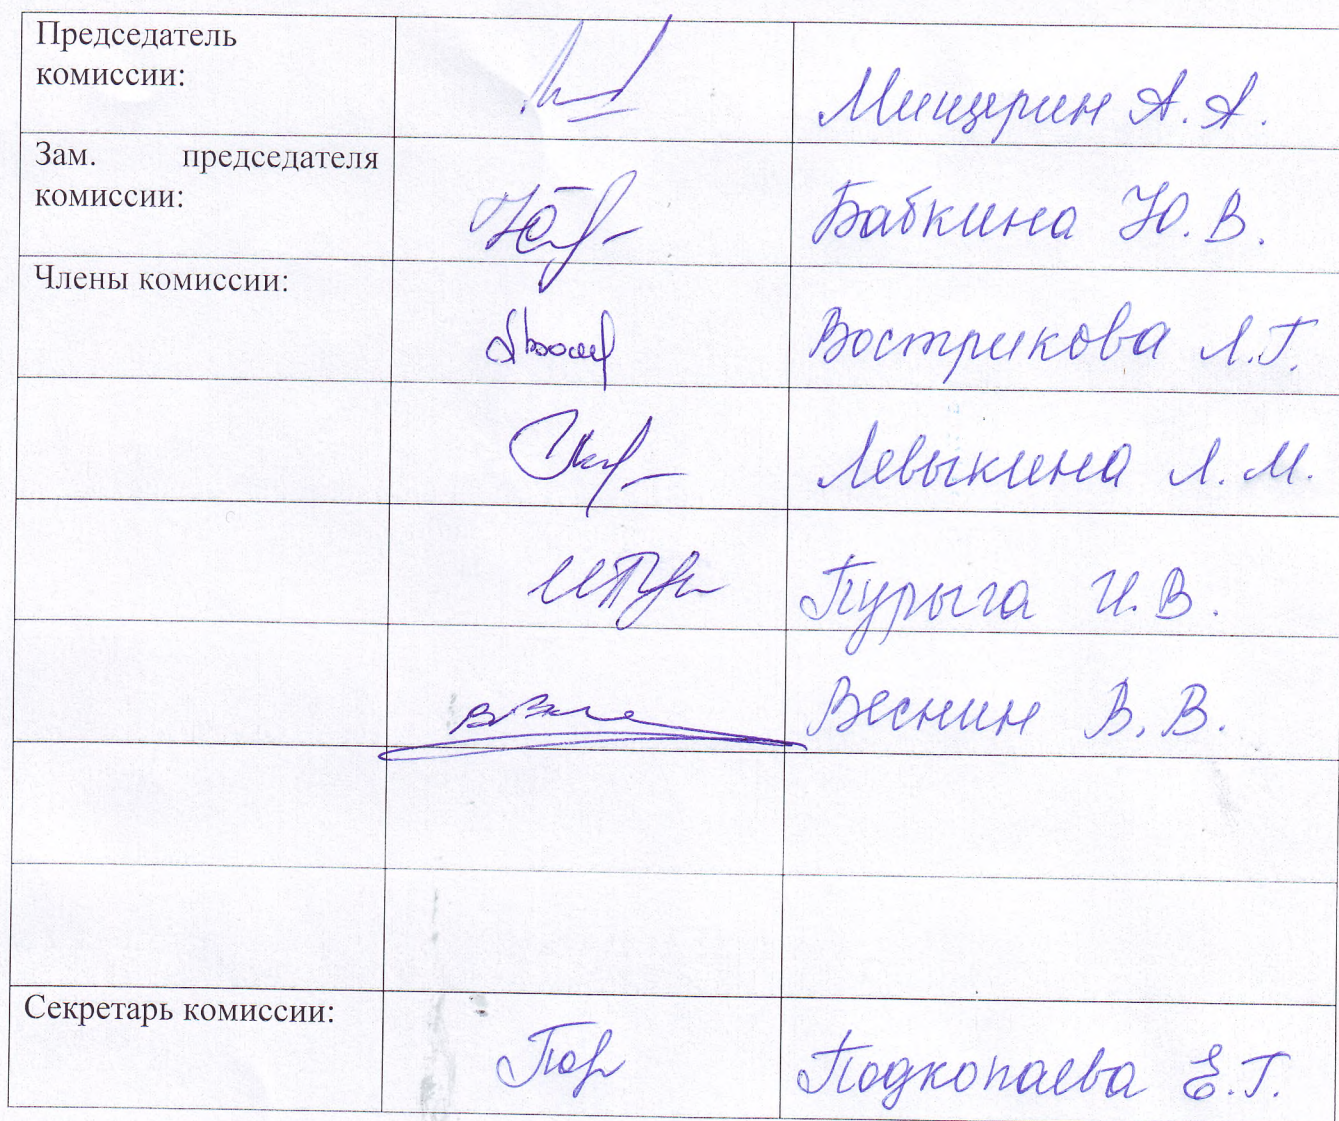 Председатель
комиссии:
Мищерин А. А.
Зам. председателя
комиссии:
Бабкина Ю. В.
Члены комиссии:
Вострикова Л.Г.
Левыкина Л. М.
Пурыга И. В.
Веснин В. В.
Секретарь комиссии:
Подкопаева Е.Г.